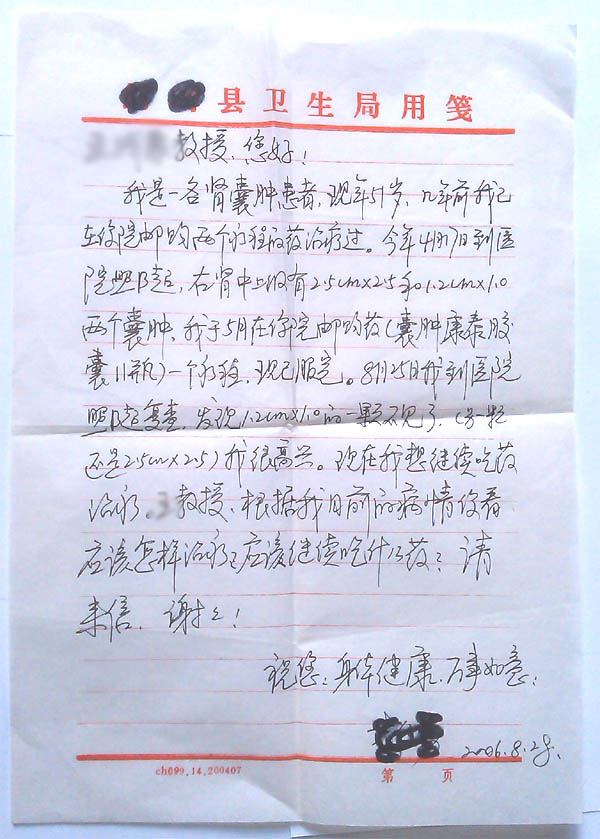 县卫生局用笺
教授、您好!
我是一名肾囊肿患者,现年51岁、几年前我已
在你院邮购两个疗程的药治疗过。今年4月9日到医
院照B超,右肾中上极有2.5cm×2.5和1.2cm×1.0
两个囊肿、我于5月在你院邮购药(囊肿康泰胶
囊11瓶)一个疗程,现已服完。8月25日我到医院
照B超复查,发现1.2cm×1.0的一颗不见了、(另一颗
还是2.5cm×2.5)我很高兴。现在我想继续吃药
治疗、教授、根据我目前的病情你看
应该怎样治疗?应该继续吃什么药?请
来信、谢谢!
祝您:身体健康、万事如意:
2006.8.28.
ch099.14.200407
第 页